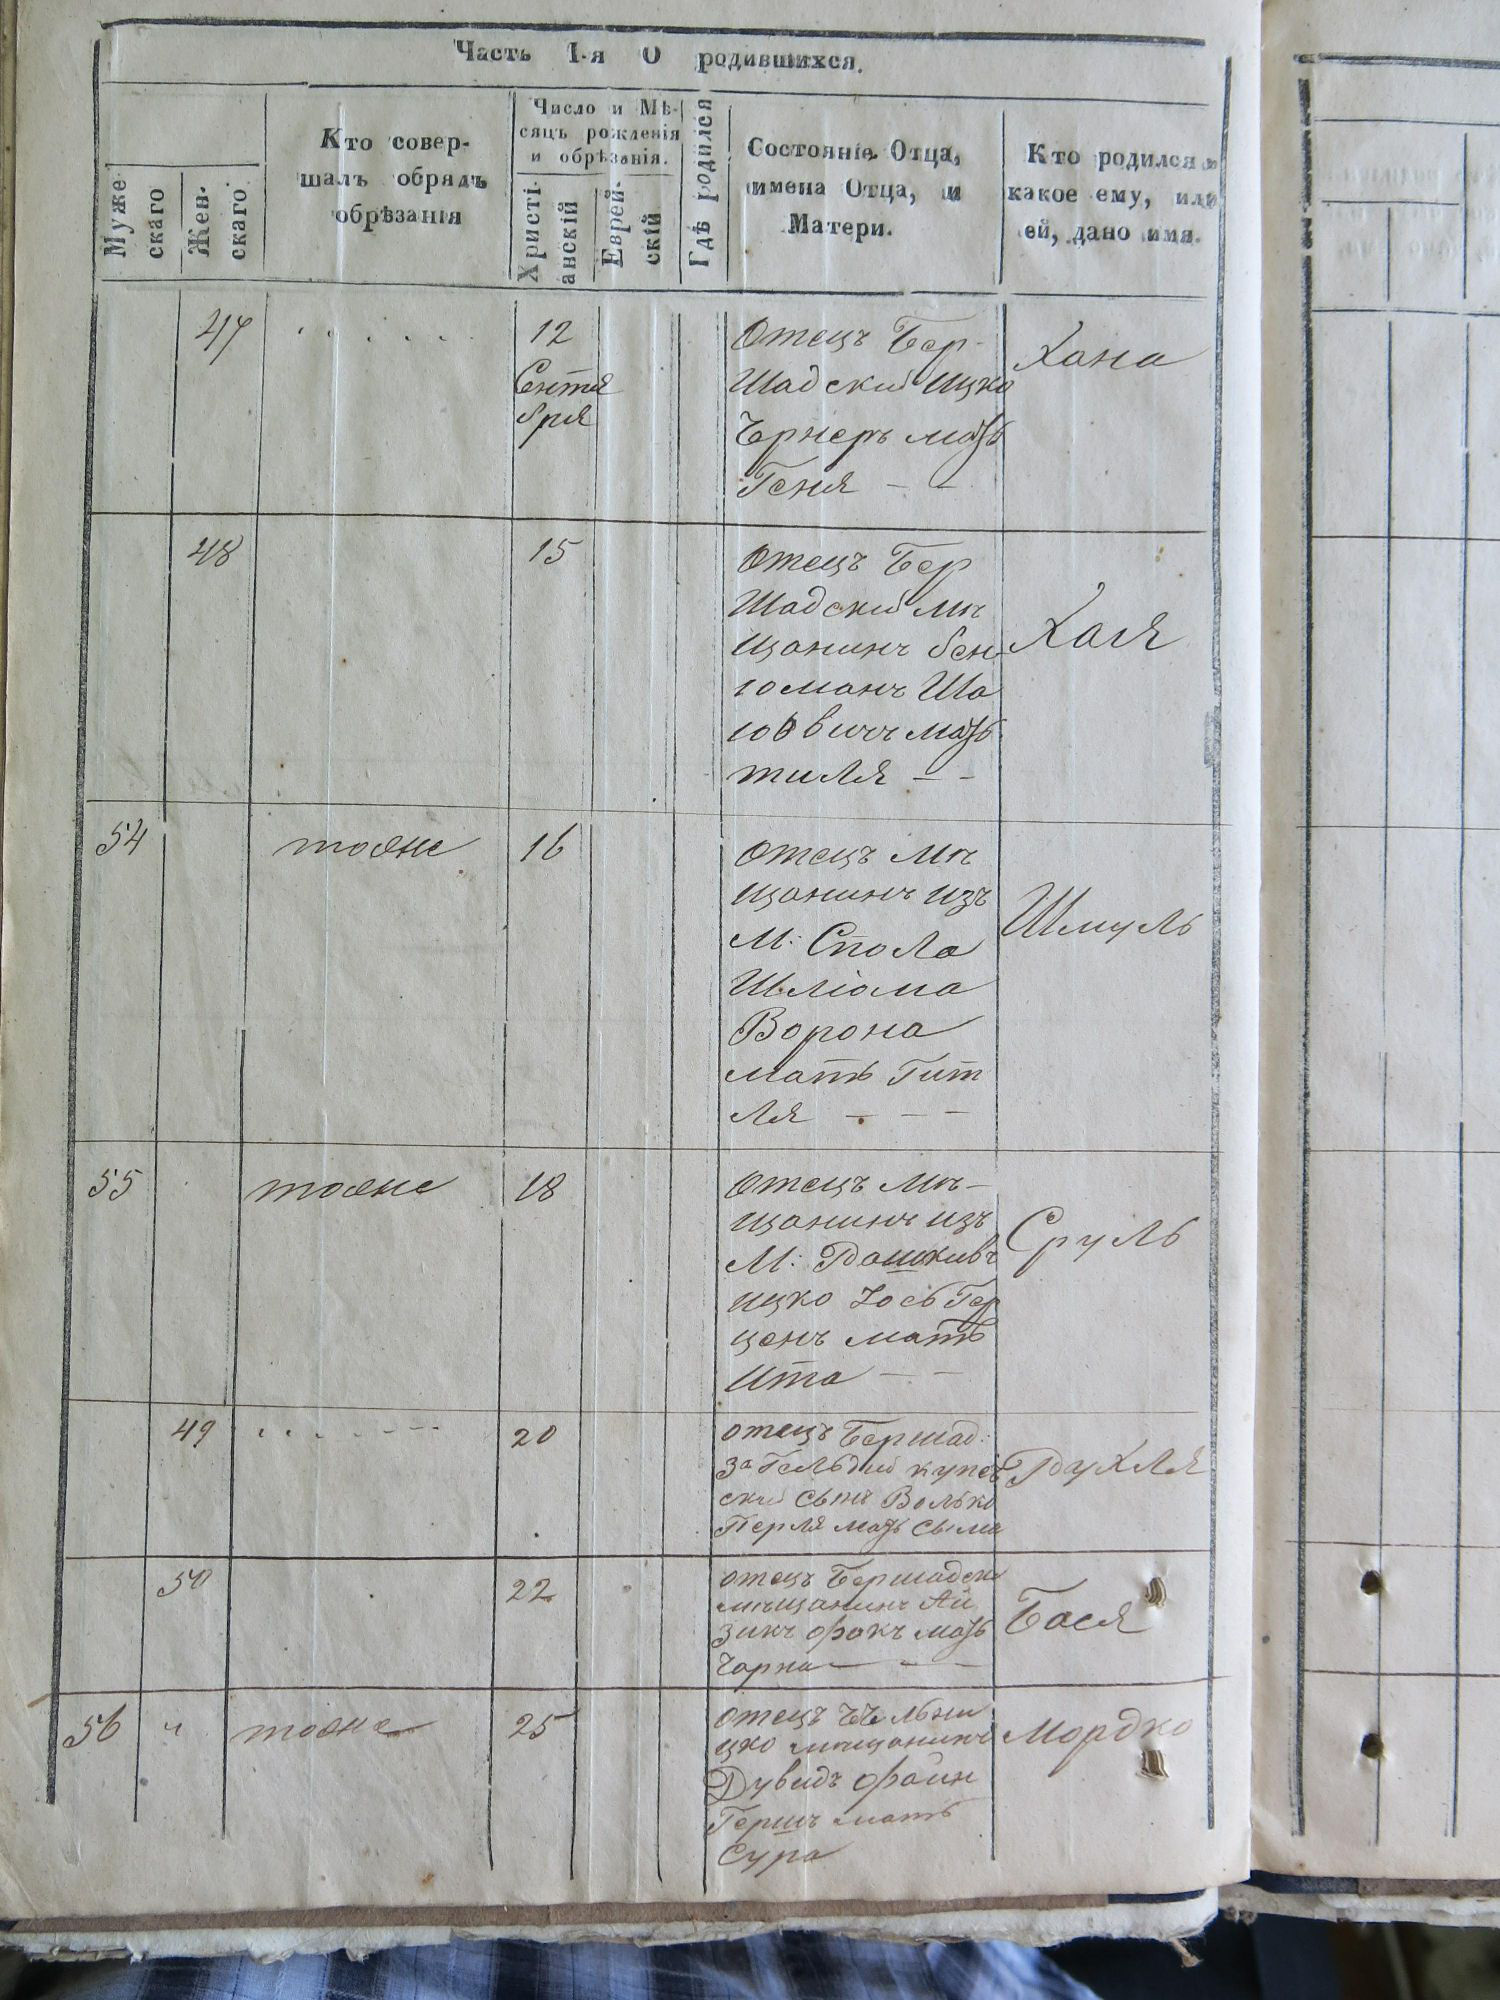 Часть 1-я О родившихся.
Муже
скаго
Жен-
скаго
Кто совер-
шалъ обрядъ
обрѣзанія
Число и Мѣ-
сяцъ рожденія
и обрѣзанія.
Христі-
анскій
Еврей-
скій
Гдѣ родился
Состояніе Отца,
имена Отца, и
Матери.
Кто родился и
какое ему, или
ей, дано имя.
47
12
Сентя
бря
Отецъ Бер-
шадскій Ицко
мать
Геня
Хана
48
15
Отецъ Бер
шадскій мѣ
щанинъ бен
юманъ Ша
мать
тиля
Хая
54
тояже
16
Отецъ мѣ
щанинъ изъ
М: Спола
Шлiома
Ворона
мать Гит
ля
Шмуль
55
тояже
18
Отецъ мѣ-
щанинъ изъ
М: Рашкивъ
Ицко Іось Гер
ценъ мать
Ита
Сруль
49
20
отецъ Бершад:
3а Гельдіи купеч
скій сынъ Волько
Перля мать Сыма
Рухля
50
22
отецъ Бершадск
мѣщанинъ Ай
зикъ Факъ мать
Чарна
Бася
56
тояже
25
отецъ
цко мѣщанинъ
Дувидъ Файн
Гершъ мать
Сура
Мордко